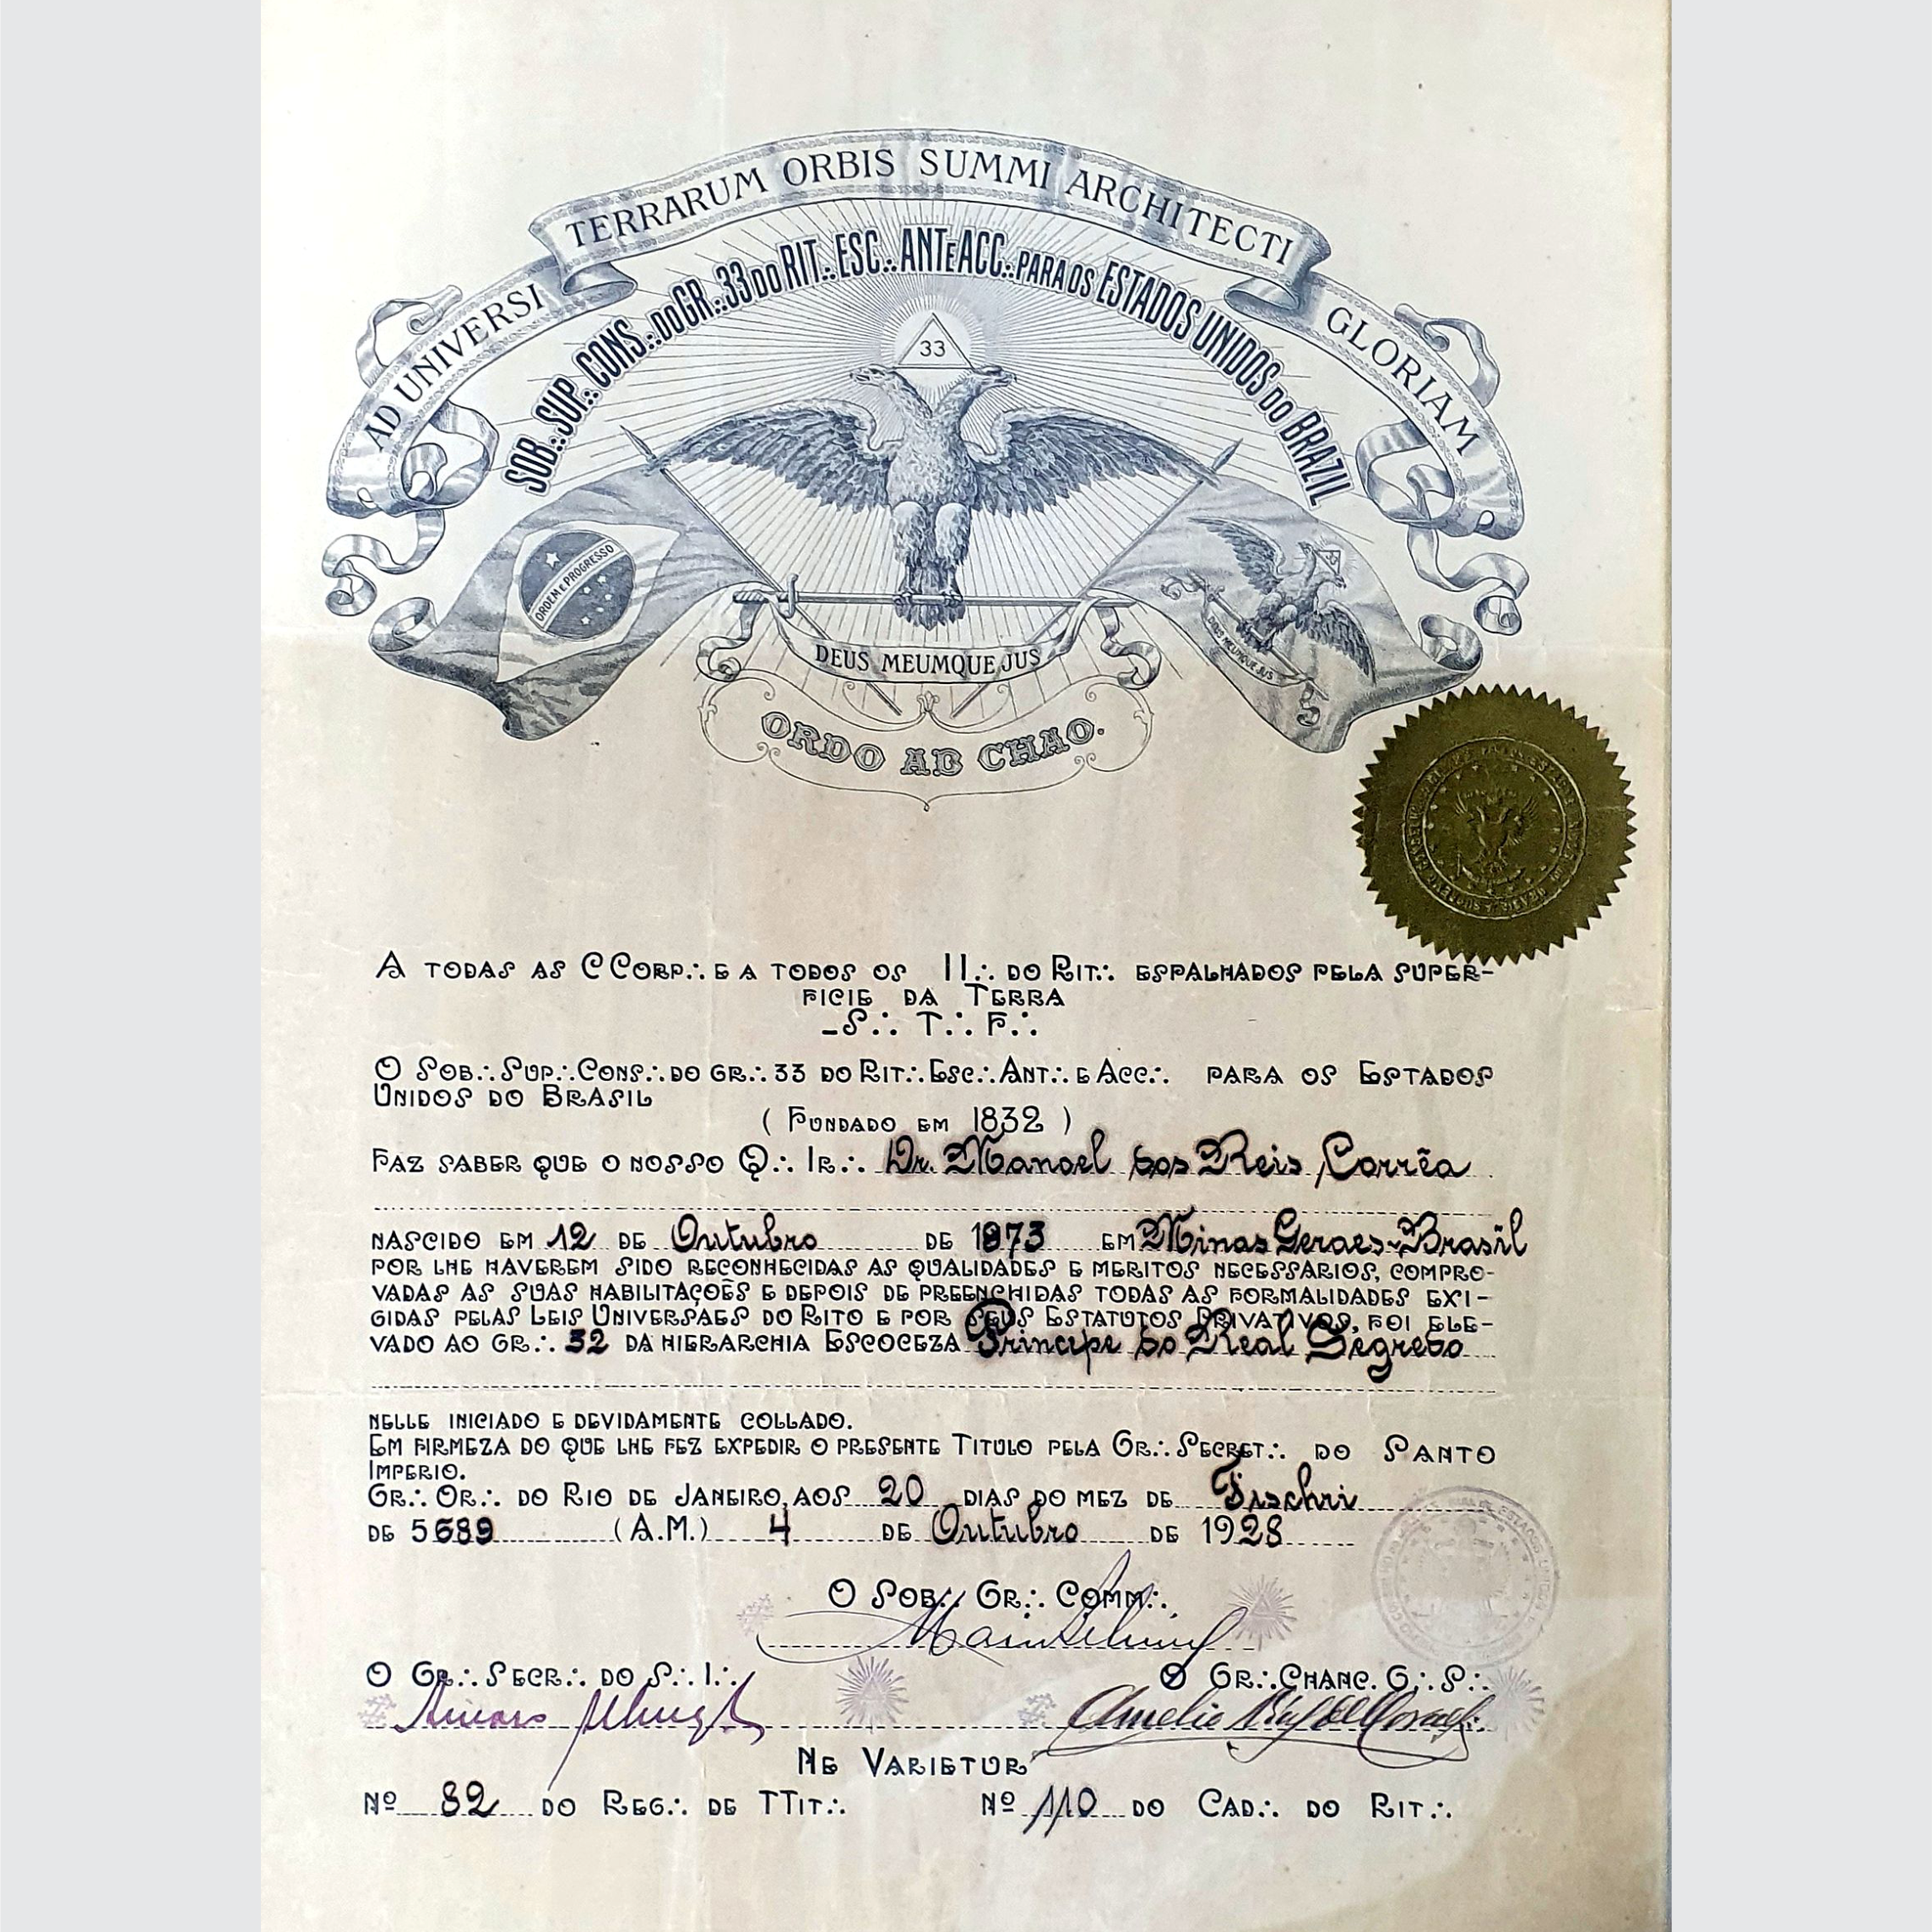 AD UNIVERSI TERRARUM ORBIS SUMMI ARCHITECTI GLORIAM
SOB∴ SUP∴ CONS∴ DO GR∴ 33 DO RIT∴ ESC∴ ANT E ACC∴ PARA OS ESTADOS UNIDOS DO BRAZIL
33
ORDEM E PROGRESSO
DEUS MEUMQUE JUS
DEUS MEUMQUE JUS
ORDO AB CHAO.
A TODAS AS CCORP∴ E A TODOS OS II∴ DO RIT∴ ESPALHADOS PELA SUPER-
FICIE DA TERRA
-S∴ T∴ F∴
O SOB∴ SUP∴ CONS∴ DO GR∴ 33 DO RIT∴ ESC∴ ANT∴ E ACC∴ PARA OS ESTADOS
UNIDOS DO BRASIL
( FUNDADO EM 1832 )
FAZ SABER QUE O NOSSO Q∴ IR∴ Dr. Manoel dos Reis Corrêa
NASCIDO EM 12 DE Outubro DE 1873 EM Minas Geraes-Brasil
POR LHE HAVEREM SIDO RECONHECIDAS AS QUALIDADES E MERITOS NECESSARIOS, COMPRO-
VADAS AS SUAS HABILITAÇÕES E DEPOIS DE PREENCHIDAS TODAS AS FORMALIDADES EXI-
GIDAS PELAS LEIS UNIVERSAES DO RITO E POR SEUS ESTATUTOS PRIVATIVOS, FOI ELE-
VADO AO GR∴ 32 DA HIERARCHIA ESCOCEZA Principe do Real Segredo
NELLE INICIADO E DEVIDAMENTE COLLADO.
EM FIRMEZA DO QUE LHE FEZ EXPEDIR O PRESENTE TITULO PELA GR∴ SECRET∴ DO SANTO
IMPERIO.
GR∴ OR∴ DO RIO DE JANEIRO, AOS 20 DIAS DO MEZ DE Tischri
DE 5689 (A.M.) 4 DE Outubro DE 1928
O SOB∴ GR∴ COMM∴
O GR∴ SECR∴ DO S∴ I∴
O GR∴ CHANC. G∴ S∴
NE VARIETUR
Nº 82 DO REG∴ DE TTIT∴
Nº 110 DO CAD∴ DO RIT∴